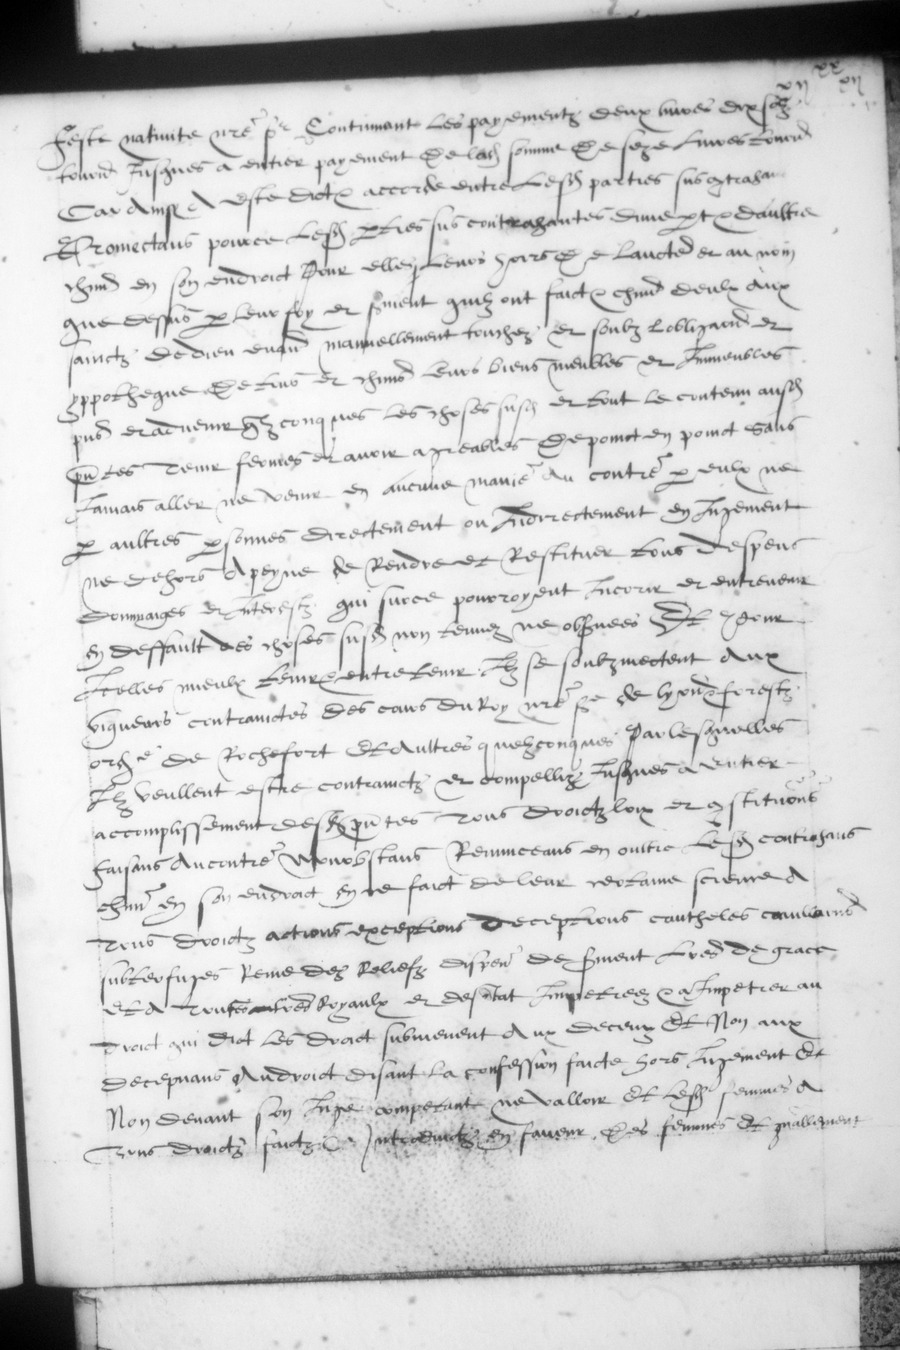 feste nativite nre sr Continuant les payementz deux livres dix solz
tourn Jusques a entier payement de lad somme de seze livres tourn
Car Ainsi A este dict accorde entre lesd parties sus contrahan
Promectans pource lesd pties sus contrahantes dune pt & daultre
chun en son endroict pour elles leurs hoirs de lauctte et au nom
que dessus p leur foy et sment quilz ont faict chun deulx aux
sainctz de dieu evan manuellement touchez et soubz lobligaon et
yppotheque de tous et chuns leurs biens meubles et Immeubles
pns et advenir qlzconques les choses susd et tout le contenu ausd
pntes tenir fermes et avoir agreables de poinct en poinct sans
Jamais aller ne venir en aucune maniere Au contre p eulx ne
p aultres psonnes directement ou Indirectement en Jugement
ne dehors A peyne de Rendre et Restituer tous despens
dommaiges et Interestz qui surce pourroyent Incorir et entrevenir
en deffault des choses susd non tenues ne observees Et pour
Icelles mieulx tenir & entretenir Ilz se soubzmectent Aux
vigueurs contrainctes des cours du Roy nre sr de lyon & forestz
de Rochefort Et Aultres quelzconques Par lesquelles
Ilz veullent estre contrainctz et compellitz Jusques a entier
accomplissement desd pntes tous droictz loix et constituons
faisans Au contre nonobstans Renunceans en oultre lesd contrahans
chun en son endroict en ce faict de leur certaine science A
tous droictz actions exceptions deceptions cautheles cavillaons
subterfuges Reme des Reliefz dispen de sment lres de grace
et A toutes lres Royaulx et destat Impetrees & a Impetrer au
droict qui dict les droict subvenent Aux deceuz Et Non aux
decepvans Au droict disant la confession faicte hors Jugement Et
Non devant son Juge competant ne valloir Et lesd femmes A
Tous droictz faictz & Introduictz en faveur des femmes Et gnallement